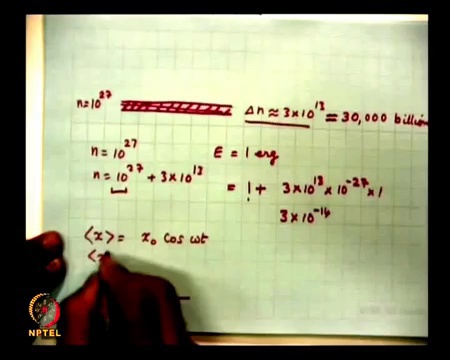 n=10²⁷ Δn ≈ 3×10¹³ = 30,000 billion
n = 10²⁷ E = 1 erg
n = 10²⁷ + 3×10¹³ = 1 + 3×10¹³ × 10⁻²⁷ × 1
3×10⁻¹⁴
⟨x⟩ = x₀ cos ωt
⟨x
NPTEL